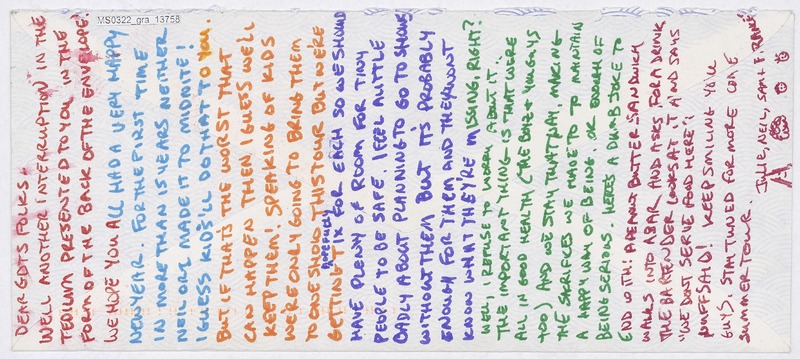 MS0322_gra_13758
DEAR GDTS FOLKS,
WELL ANOTHER INTERRUPTION IN THE
TEDIUM PRESENTED TO YOU, IN THE
FORM OF THE BACK OF THE ENVELOPE!
WE HOPE YOU ALL HAD A VERY HAPPY
NEW YEAR. FOR THE FIRST TIME
IN MORE THAN 15 YEARS NEITHER
NEIL OR I MADE IT TO MIDNITE!
I GUESS KIDS'LL DO THAT TO YOU.
BUT IF THAT'S THE WORST THAT
CAN HAPPEN THEN I GUESS WE'LL
KEEP THEM! SPEAKING OF KIDS
WE'RE ONLY GOING TO BRING THEM
TO ONE SHOW THIS TOUR BUT WERE
HOPEFULLY
GETTING TIX FOR EACH SO WE SHOULD
HAVE PLENTY OF ROOM FOR TINY
PEOPLE TO BE SAFE. I FEEL A LITTLE
BADLY ABOUT PLANNING TO GO TO SHOWS
WITHOUT THEM BUT IT'S PROBABLY
ENOUGH FOR THEM, AND THEY WONT
KNOW WHAT THEY'RE MISSING, RIGHT?
WELL, I REFUSE TO WORRY ABOUT IT.
THE IMPORTANT THING IS THAT WERE
ALL IN GOOD HEALTH (THE BAND & YOU GUYS
TOO) AND WE STAY THAT WAY, MAKING
THE SACRIFICES WE HAVE TO TO MAINTAIN
A HAPPY WAY OF BEING. OR ENOUGH OF
BEING SERIOUS. HERE'S A DUMB JOKE TO
END WITH: A PEANUT BUTTER SANDWICH
WALKS INTO A BAR AND ASKS FOR A DRINK
THE BARTENDER LOOKS AT IT AND SAYS
"WE DON'T SERVE FOOD HERE":
NUFF SAID! KEEP SMILING YOU
GUYS. STAY TUNED FOR MORE COME
SUMMER TOUR.
JULIE, NEIL, SAM & F